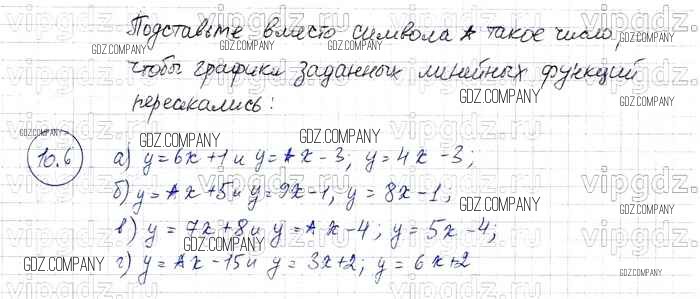 Подставьте вместо символа * такое число,
GDZ.COMPANY GDZ.COMPANY GDZ.COMPANY
чтобы графики заданных линейных функций
пересекались:
GDZ.COMPANY GDZ.COMPANY
GDZ.COMPANY GDZ.COMPANY GDZ.COMPANY
10.6 а) y = 6x + 1 и y = * x - 3; y = 4x - 3;
б) y = * x + 5 и y = 9x - 1, y = 8x - 1;
GDZ.COMPANY
в) y = 7x + 8 и y = * x - 4; y = 5x - 4;
GDZ.COMPANY GDZ.COMPANY
г) y = * x - 15 и y = 3x + 2; y = 6x + 2
GDZ.COMPANY GDZ.COMPANY
vipgdz.ru